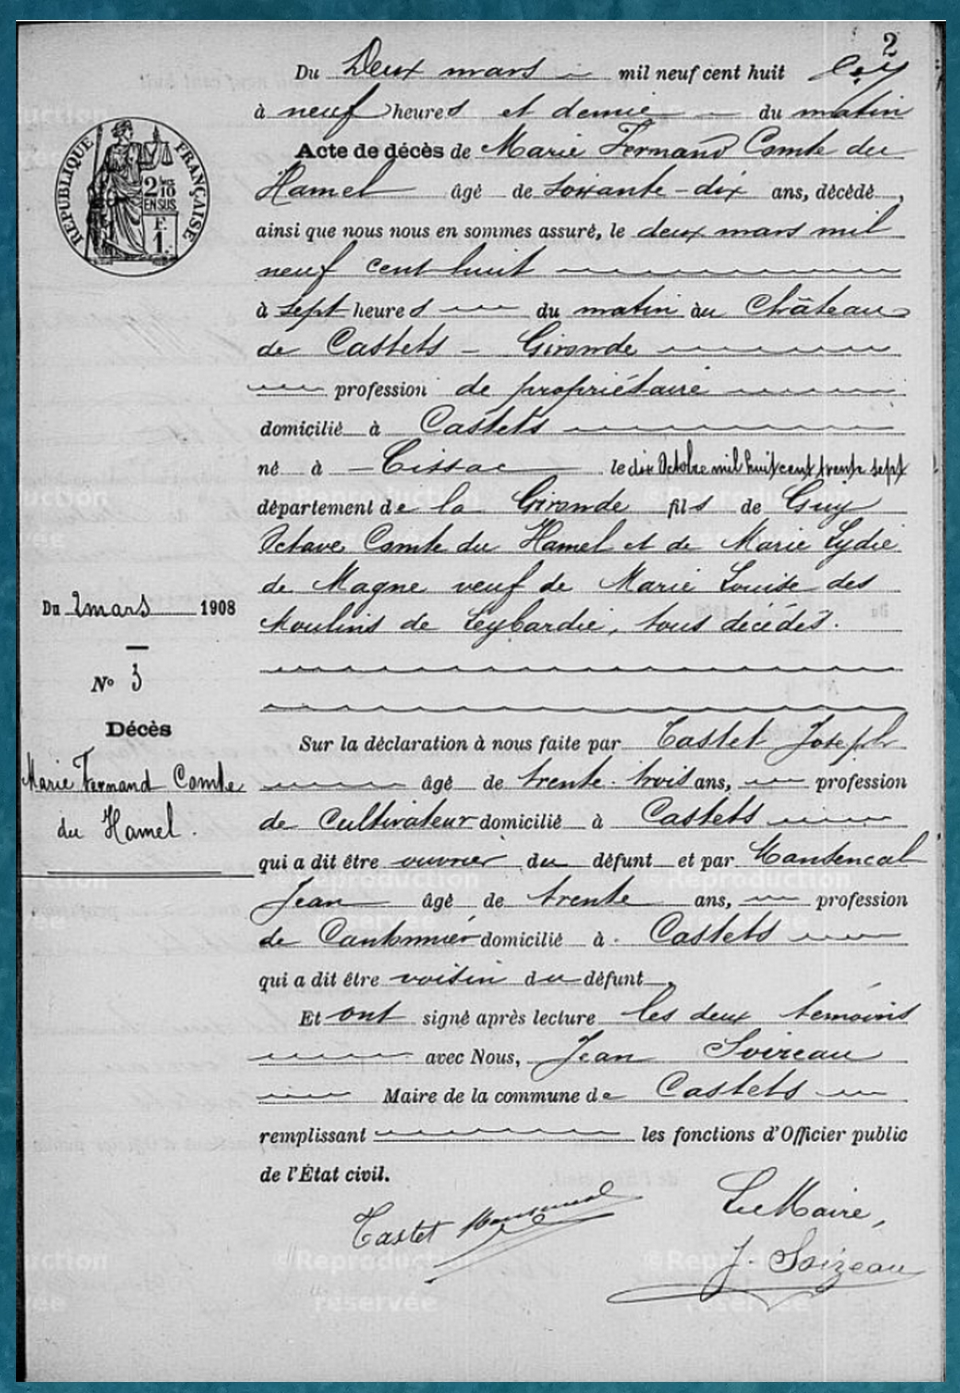 2
Du Deux mars mil neuf cent huit
à neuf heures et demie du matin
Acte de décès de Marie Fernand Comte du
Hamel âgé de soixante-dix ans, décédé,
ainsi que nous nous en sommes assuré, le deux mars mil
neuf cent huit
à sept heures du matin au Château
de Castets - Gironde
profession de propriétaire
domicilié à Castets
né à Cissac le dix Octobre mil huit cent trente sept
département de la Gironde fils de Guy
Octave Comte du Hamel et de Marie Lydie
de Magne veuf de Marie Louise des
Moulins de Leybardie, tous décédés.
RÉPUBLIQUE FRANÇAISE
2/10
EN SUS
F.
1
Du 2 mars 1908
N° 3
Décès
Marie Fernand Comte
du Hamel.
Sur la déclaration à nous faite par Tastet Joseph
âgé de trente-trois ans, profession
de Cultivateur domicilié à Castets
qui a dit être ouvrier du défunt et par Mansencal
Jean âgé de trente ans, profession
de Cantonnier domicilié à Castets
qui a dit être voisin du défunt.
Et ont signé après lecture les deux témoins
avec Nous, Jean Soizeau
Maire de la commune de Castets
remplissant les fonctions d'Officier public
de l'État civil.
Le Maire,
Tastet Mansencal
J. Soizeau
©Reproduction
réservée